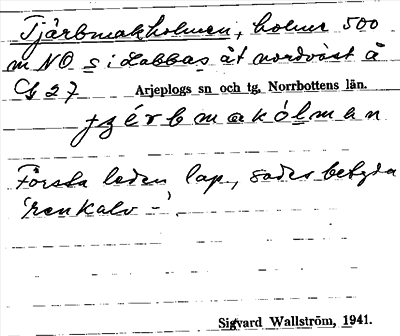 Tjärbmakholmen, holme 500
m NO s i Labbas åt nordväst å
G 27 Arjeplogs sn och tg, Norrbottens län.
tjérbmakólman
Första leden lap., sades betyda
'renkalv -'.
Sigvard Wallström, 1941.